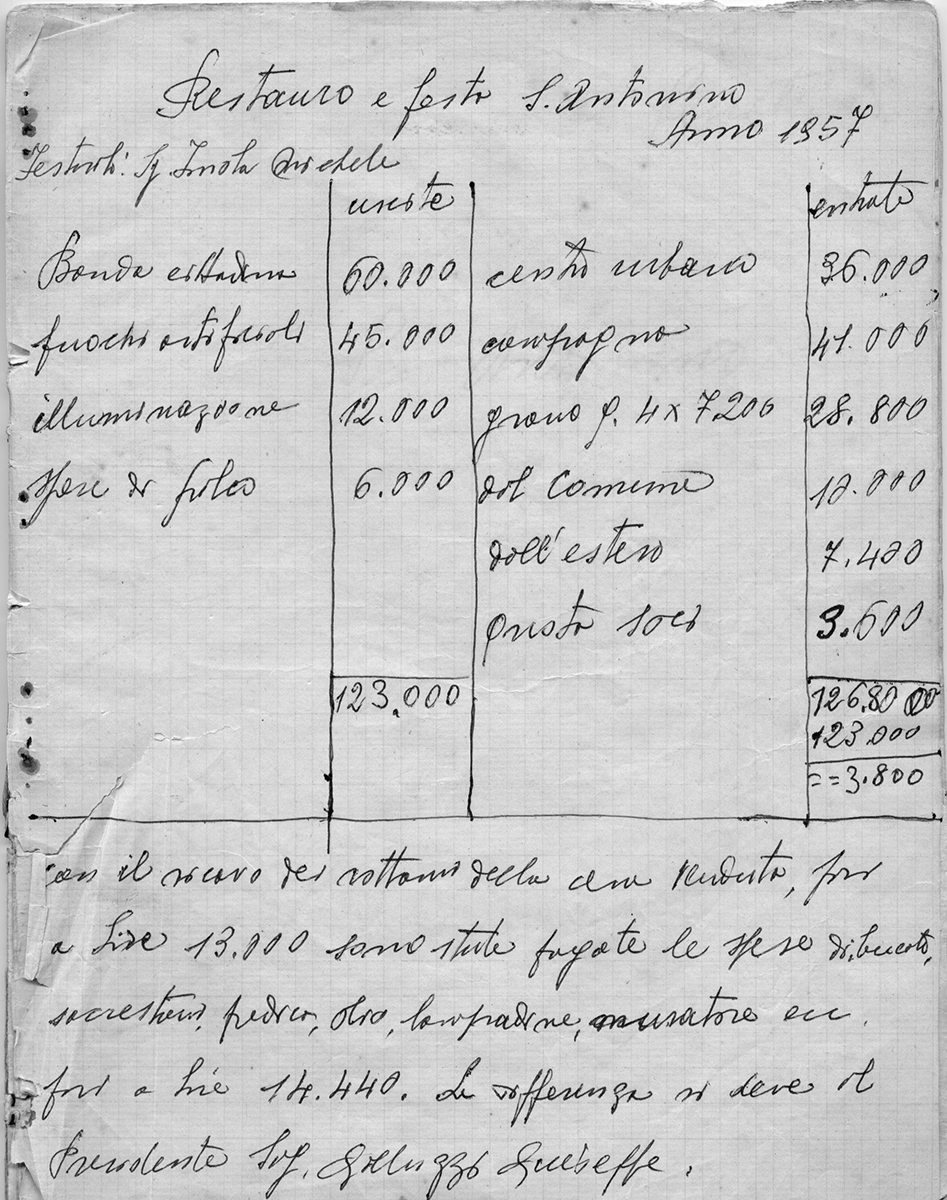 Restauro e festa S. Antonino
Anno 1957
Sg. Imola Michele
uscite entrate
Banda cittadina 60.000 centro urbano 36.000
fuochi artificiali 45.000 campagna 41.000
illuminazione 12.000 grano q. 4 x 7200 28.800
spese di 6.000 dal Comune 10.000
dall'estero 7.400
quota soci 3.600
123.000 126.800
123.000
== 3.800
con il ricavo dei rottami della cera venduta, pari
a Lire 13.000 sono state pagate le spese di, bucato,
sacrestano, predica, olio, lampadine, muratore ecc.
pari a Lire 14.440. La differenza si deve al
Presidente Sig. Galluzzi Guiseffe.